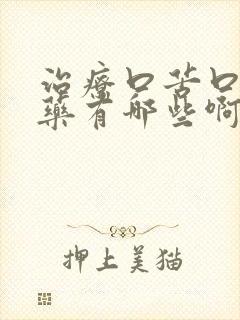 治療口苦口
藥有哪些啊
押上美猫